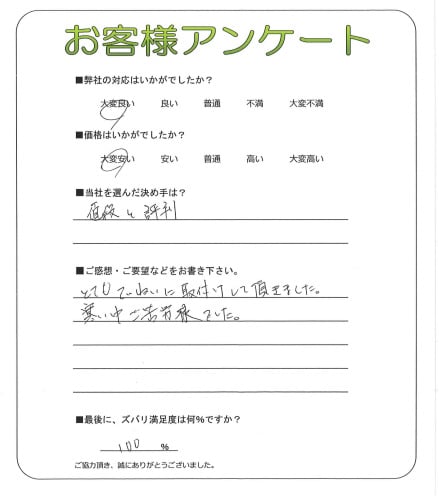 お客様アンケート
■弊社の対応はいかがでしたか？
大変良い 良い 普通 不満 大変不満
■価格はいかがでしたか？
大変安い 安い 普通 高い 大変高い
■当社を選んだ決め手は？
値段と評判
■ご感想・ご要望などをお書き下さい。
とてもていねいに取付けして頂きました。
寒い中ご苦労様でした。
■最後に、ズバリ満足度は何%ですか？
100 %
ご協力頂き、誠にありがとうございました。